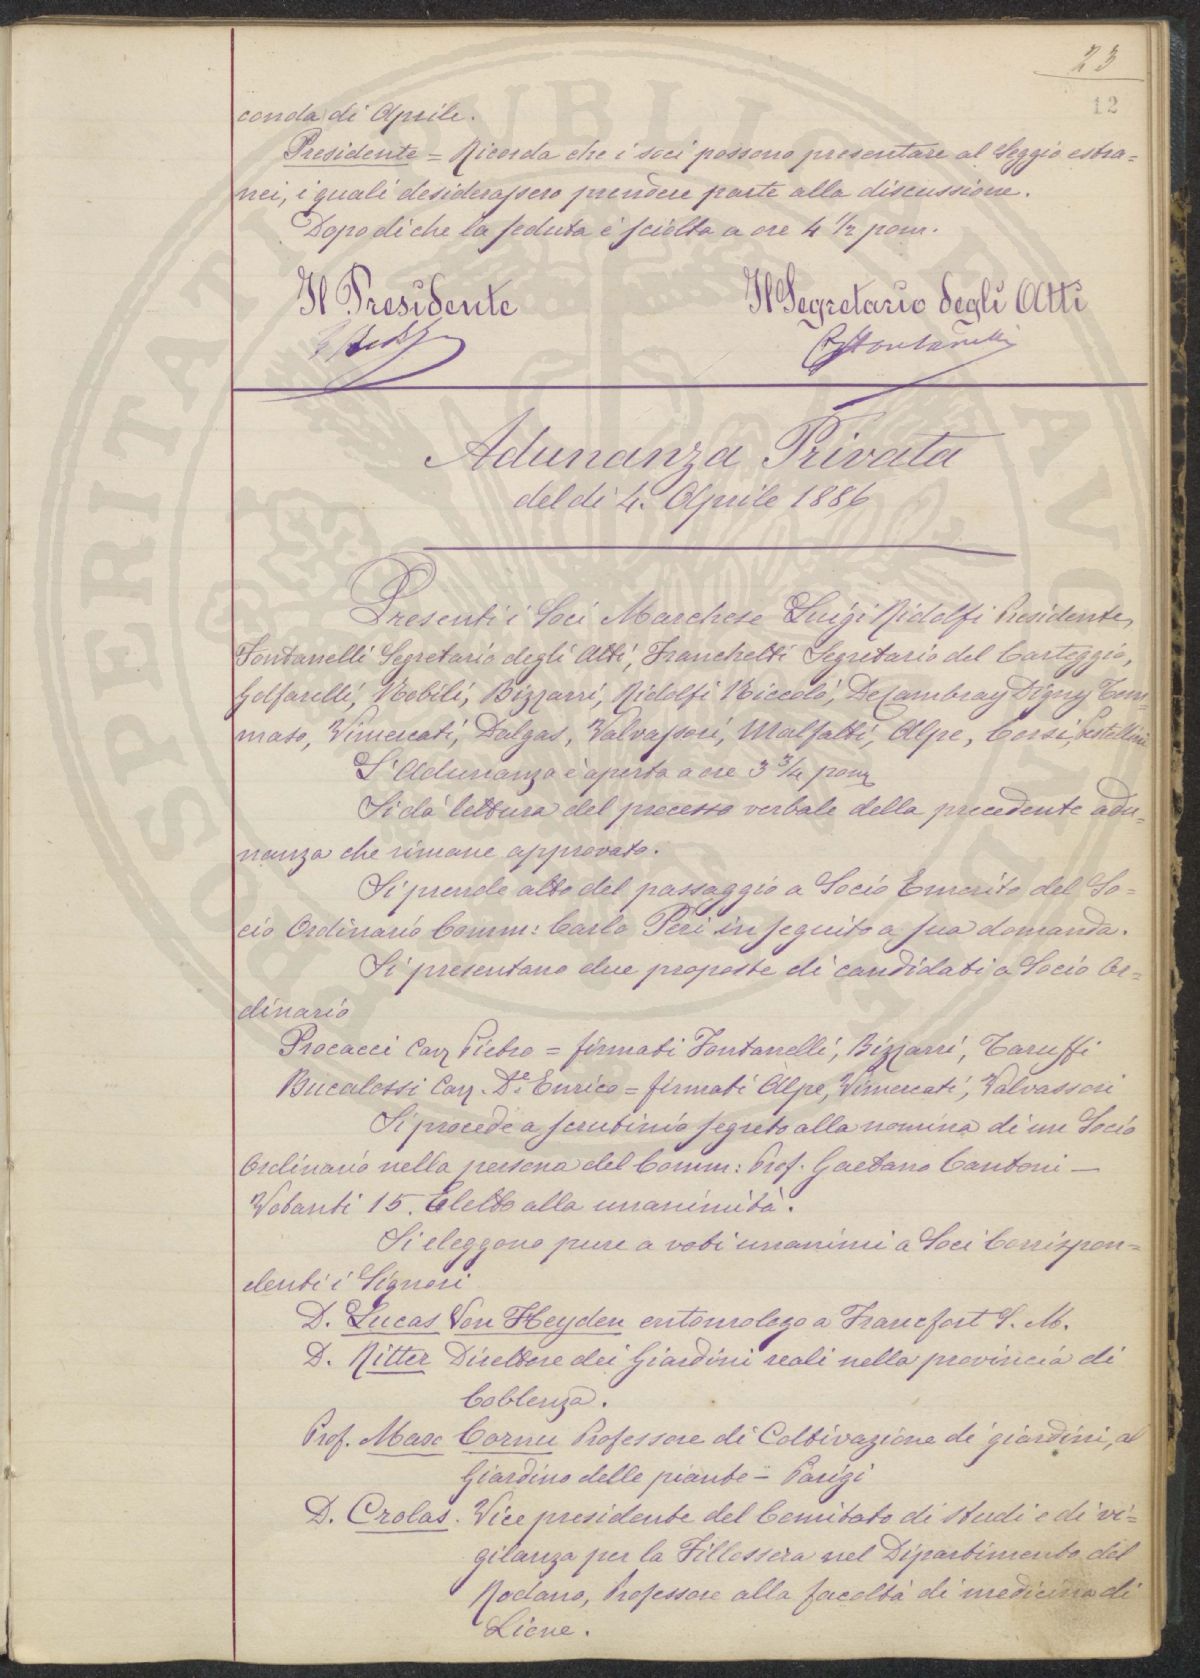 23
12
conda di Aprile.
Presidente = Ricorda che i soci possono presentare al Seggio estra=
nei, i quali desiderassero prendere parte alla discussione.
Dopo di che la seduta è sciolta a ore 4 1/2 pom.
Il Presidente Il Segretario degli Atti
Fontanelli
Adunanza Privata
del dì 4. Aprile 1886
Presenti i Soci Marchese Luigi Ridolfi Presidente,
Fontanelli Segretario degli Atti, Franchetti Segretario del Carteggio,
Golfarelli, Nobili, Bizzarri, Ridolfi Niccolò, De Cambray Digny Tom=
maso, Vimercati, Dalgas, Valvassori, Malfatti, Alpe, Corsi, Pestellini
L'Adunanza è aperta a ore 3 3/4 pom
Si dà lettura del processo verbale della precedente adu=
nanza che rimane approvato.
Si prende atto del passaggio a Socio Emerito del So=
cio Ordinario Comm: Carlo Peri in seguito a sua domanda.
Si presentano due proposte di candidati a Socio Or=
dinario
Procacci Cav Pietro = firmati Fontanelli, Bizzarri, Taruffi
Bucalossi Cav. De. Enrico = firmati Alpe, Vimercati, Valvassori
Si procede a scrutinio segreto alla nomina di un Socio
Ordinario nella persona del Comm: Prof. Gaetano Cantoni —
Votanti 15. Eletto alla unanimità.
Si eleggono pure a voti unanimi a Soci Corrispon=
denti i Signori
D. Lucas Von Heyden entomologo a Francfort S. M.
D. Ritter Direttore dei Giardini reali nella provincia di
Coblenza.
Prof. Maxe Cornu Professore di Coltivazione di giardini, al
Giardino delle piante - Parigi
D. Crolas. Vice presidente del Comitato di studi e di vi=
gilanza per la Fillossera nel Dipartimento del
Rodano, Professore alla facoltà di medicina di
Lione.